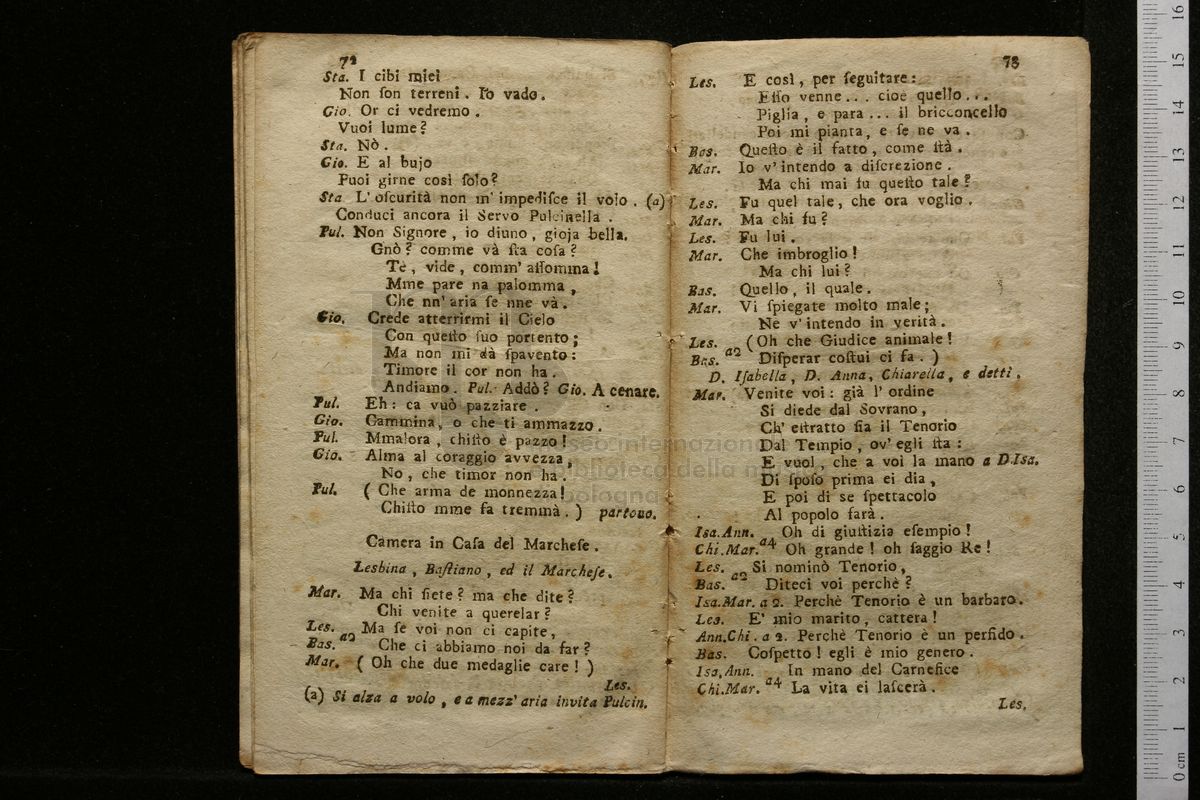 72
Sta. I cibi miei
Non ſon terreni. Io vado.
Gio. Or ci vedremo.
Vuoi lume?
Sta. Nò.
Gio. E al bujo
Puoi girne così ſolo?
Sta L' oſcurità non m' impediſce il volo. (a)
Conduci ancora il Servo Pulcinella.
Pul. Non Signore, io diuno, gioja bella.
Gnò? comme và ſta coſa?
Tè, vide, comm' aſſomma!
Mme pare na palomma,
Che nn' aria ſe nne và.
Gio. Crede atterrirmi il Cielo
Con queſto ſuo portento;
Ma non mi dà ſpavento:
Timore il cor non ha.
Andiamo. Pul. Addò? Gio. A cenare.
Pul. Eh: ca vuò pazziare.
Gio. Cammina, o che ti ammazzo.
Pul. Mmalora, chiſto è pazzo!
Gio. Alma al coraggio avvezza,
No, che timor non ha.
Pul. (Che arma de monnezza!
Chiſto mme fa tremmà.) partono.
Camera in Caſa del Marcheſe.
Lesbina, Baſtiano, ed il Marcheſe.
Mar. Ma chi ſiete? ma che dite?
Chi venite a querelar?
Les. Ma ſe voi non ci capite,
Bas. a2 Che ci abbiamo noi da far?
Mar. (Oh che due medaglie care!)
Les.
(a) Si alza a volo, e a mezz' aria invita Pulcin.
73
Les. E così, per ſeguitare:
Eſſo venne... cioè quello...
Piglia, e para... il bricconcello
Poi mi pianta, e ſe ne va.
Bas. Queſto è il fatto, come ſtà.
Mar. Io v' intendo a diſcrezione.
Ma chi mai fu queſto tale?
Les. Fu quel tale, che ora voglio.
Mar. Ma chi fu?
Les. Fu lui.
Mar. Che imbroglio!
Ma chi lui?
Bas. Quello, il quale.
Mar. Vi ſpiegate molto male;
Ne v' intendo in verità.
Les. (Oh che Giudice animale!
Bas. a2 Diſperar coſtui ci fa.)
D. Iſabella, D. Anna, Chiarella, e detti.
Mar. Venite voi: già l' ordine
Si diede dal Sovrano,
Ch' eſtratto ſia il Tenorio
Dal Tempio, ov' egli ſta:
E vuol, che a voi la mano a D.Isa.
Di ſpoſo prima ei dia,
E poi di se ſpettacolo
Al popolo farà.
Isa.Ann. Oh di giuſtizia eſempio!
Chi.Mar. a4 Oh grande! oh ſaggio Re!
Les. Si nominò Tenorio,
Bas. a2 Diteci voi perchè?
Isa.Mar. a 2. Perchè Tenorio è un barbaro.
Les. E' mio marito, cattera!
Ann.Chi. a 2. Perchè Tenorio è un perfido.
Bas. Coſpetto! egli è mio genero.
Isa,Ann. In mano del Carnefice
Chi.Mar. a4 La vita ei laſcerà.
Les.
museo internazionale
biblioteca della musica
bologna
0 cm 1 2 3 4 5 6 7 8 9 10 11 12 13 14 15 16